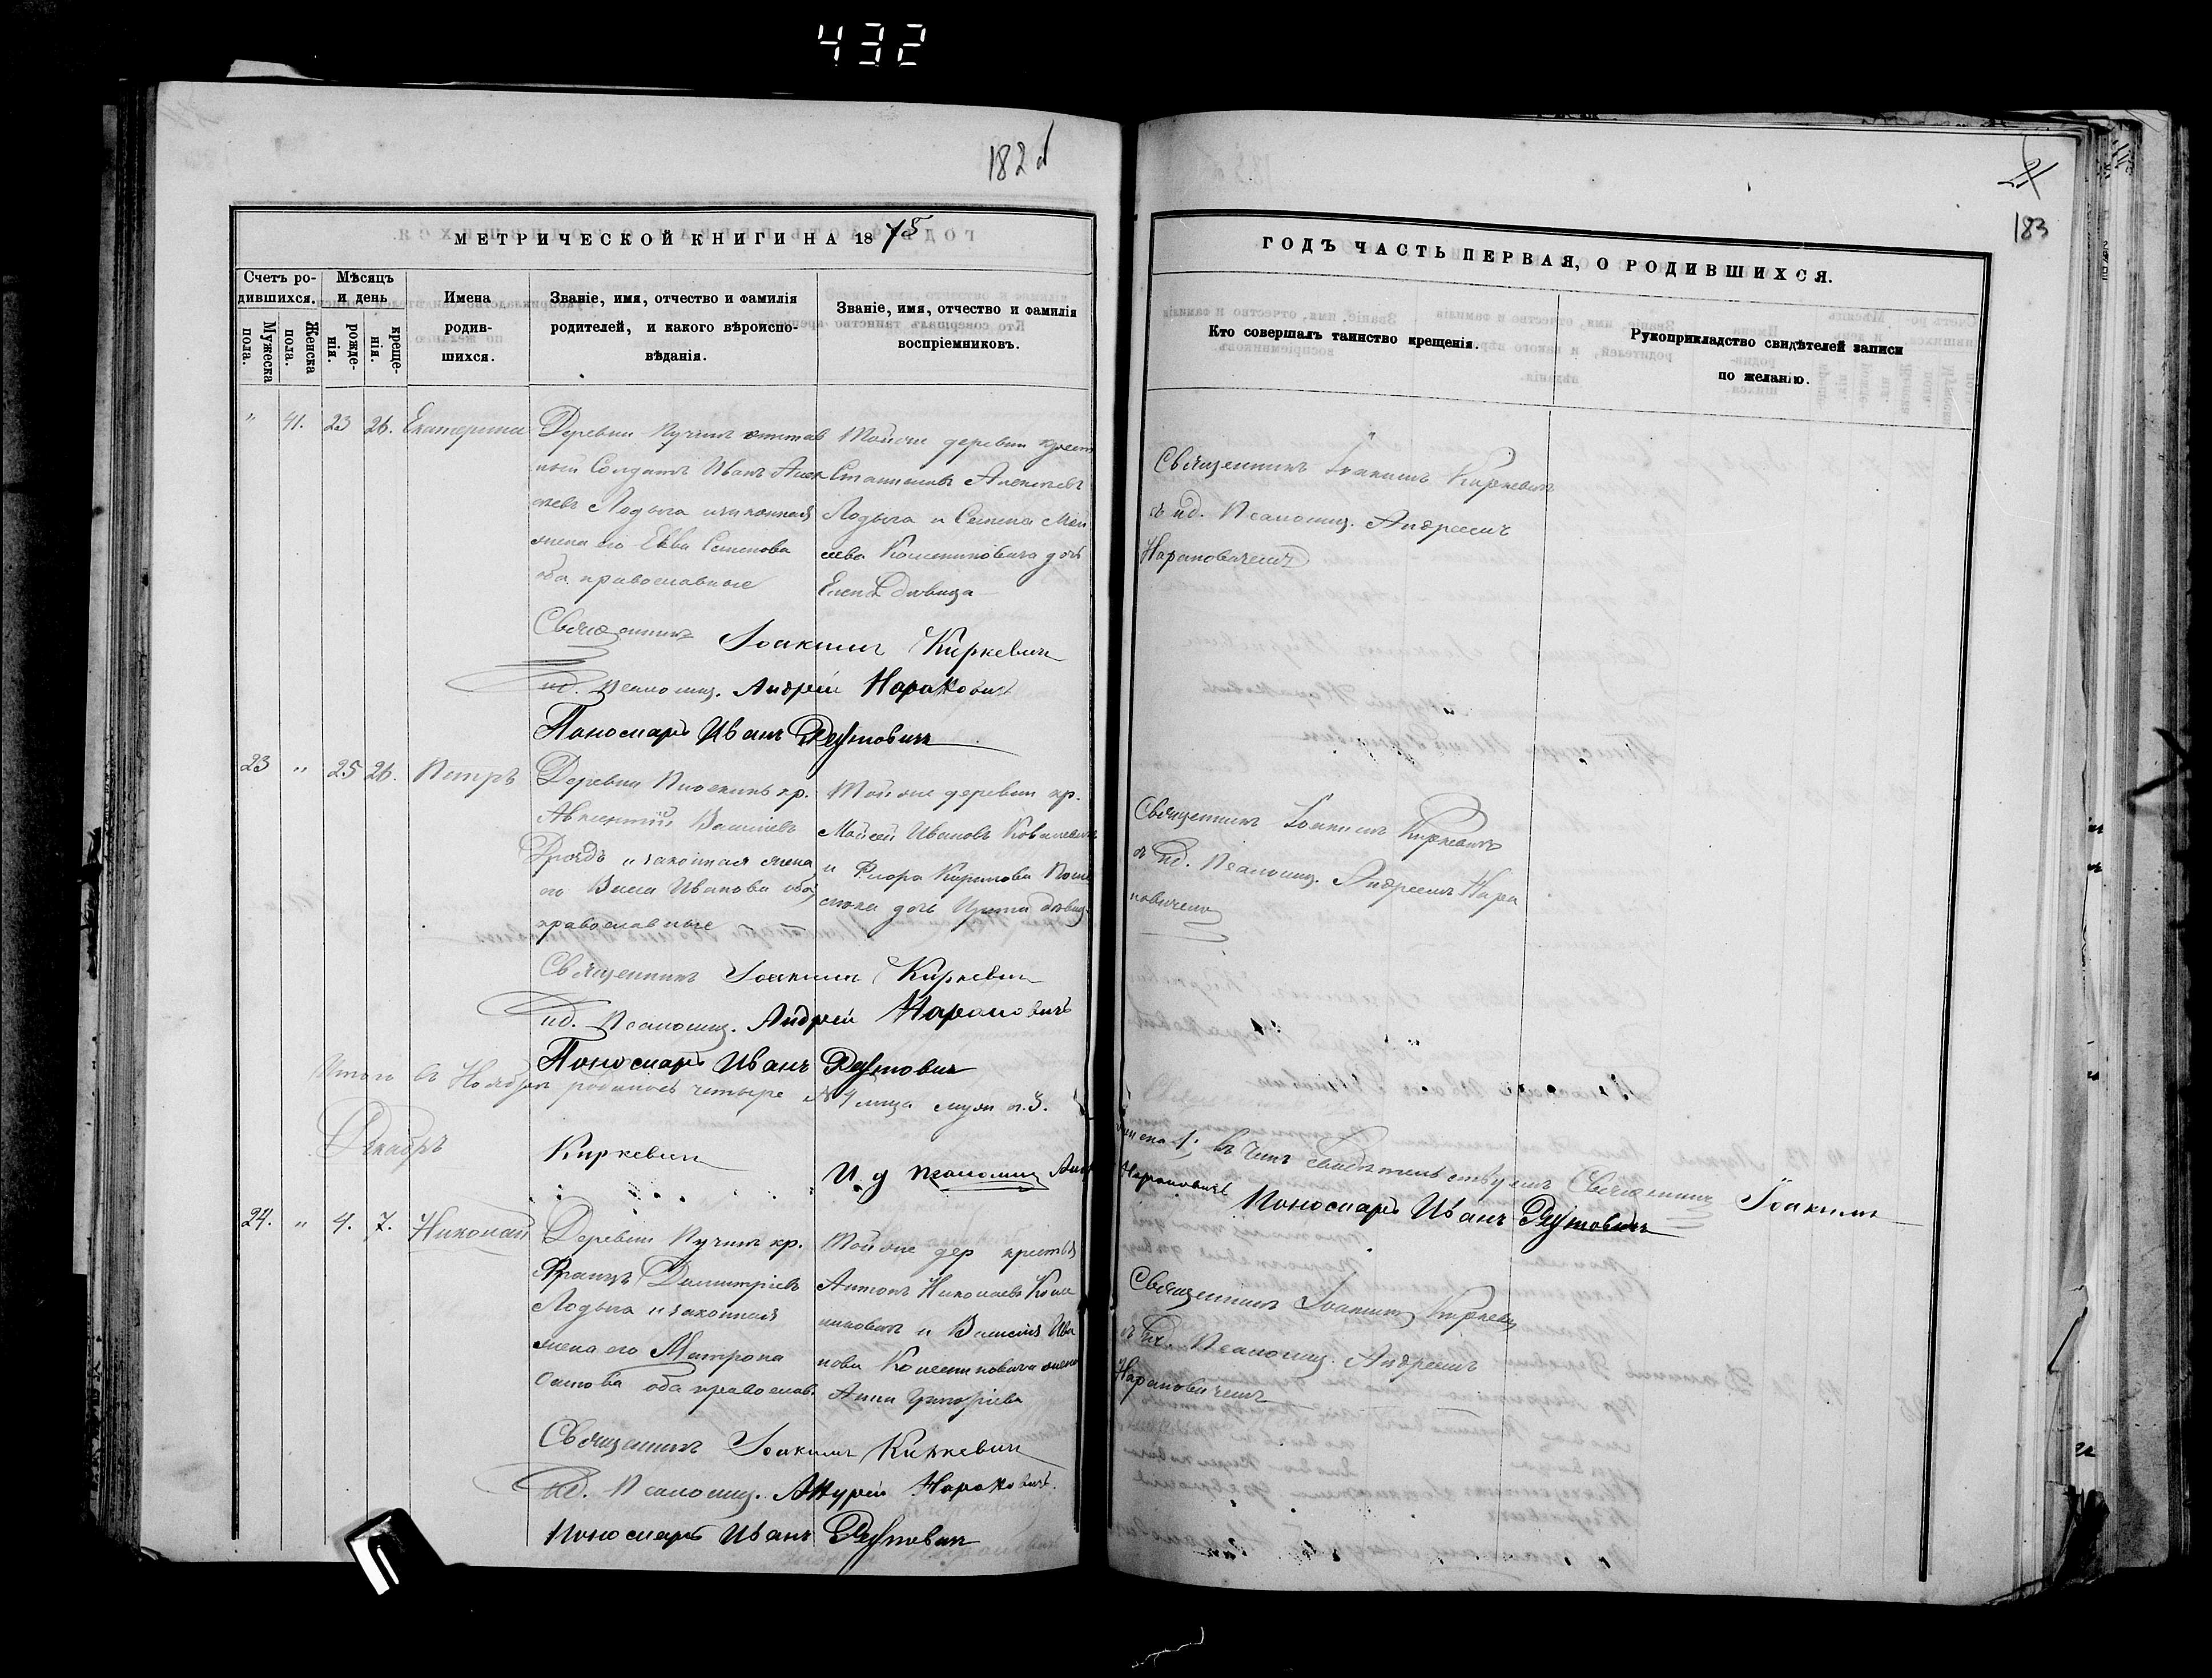 432
182 об
183
МЕТРИЧЕСКОЙ КНИГИ НА 1875
Счетъ родившихся.
Мужеска пола.
Женска пола.
Мѣсяцъ и день
рожденія.
крещенія.
Имена родившихся.
Званіе, имя, отчество и фамилія родителей, и какого вѣроисповѣданія.
Званіе, имя, отчество и фамилія воспріемниковъ.
ГОДЪ ЧАСТЬ ПЕРВАЯ, О РОДИВШИХСЯ.
Кто совершалъ таинство крещенія.
Рукоприкладство свидѣтелей записи по желанію.
" 41. 23 26. Екатерина
Деревни Пучинъ отстав
ной Солдатъ Иванъ Алек
сѣевъ Лодыга и законная
жена его Евва Семенова
оба православные
Тойже деревни крест
Алексѣевъ
Лодыга и Семена
дочь
Елена дѣвица
Священникъ Іоакимъ Киркевич
съ ид. Псаломщ. Андреемъ
Нарановичемъ
Священникъ Іоакимъ Киркевич
ид. Псаломщ. Андрей Наранович
Пономарь Иванъ Реутович
23 " 25 26. Петръ
Деревни кр.
Авксентій Василіевъ
Дроздъ и законная жена
его Васса Иванова оба
православные
Тойже деревни кр.
Мойсей Ивановъ Ковалевич
и Флора Кирилова
дочь дѣвиц.
Священникъ Іоакимъ Киркевичъ
съ ид. Псаломщ. Андреемъ Нара
новичемъ
Священникъ Іоакимъ Киркевич
ид. Псаломщ. Андрей Нарановичъ
Пономарь Иванъ Реутович
Итого въ Ноябрѣ родилось четыре № 4 лица муж п. 3.
жена 1; въ чемъ свидѣтельствуемъ Священникъ Іоакимъ
Киркевич
И. д псаломщ Анд
Нарановичъ
Пономарь Иванъ Реутовичъ
Декабрь
24. " 4. 7. Николай
Деревни Пучинъ кр.
Францъ Димитріевъ
Лодыга и законная
жена его Матрона
оба православ.
Тойже дер крестья
Антонъ Николаевъ Коле
сникович и Василія Ива
нова Колесниковича жена
Анна Григоріева
Священникъ Іоакимъ Киркевич
съ ид. Псаломщ. Андреемъ
Нарановичемъ
Священникъ Іоакимъ Киркевич
ид. Псаломщ. Андрей Нарановичъ.
Пономарь Иванъ Реутович